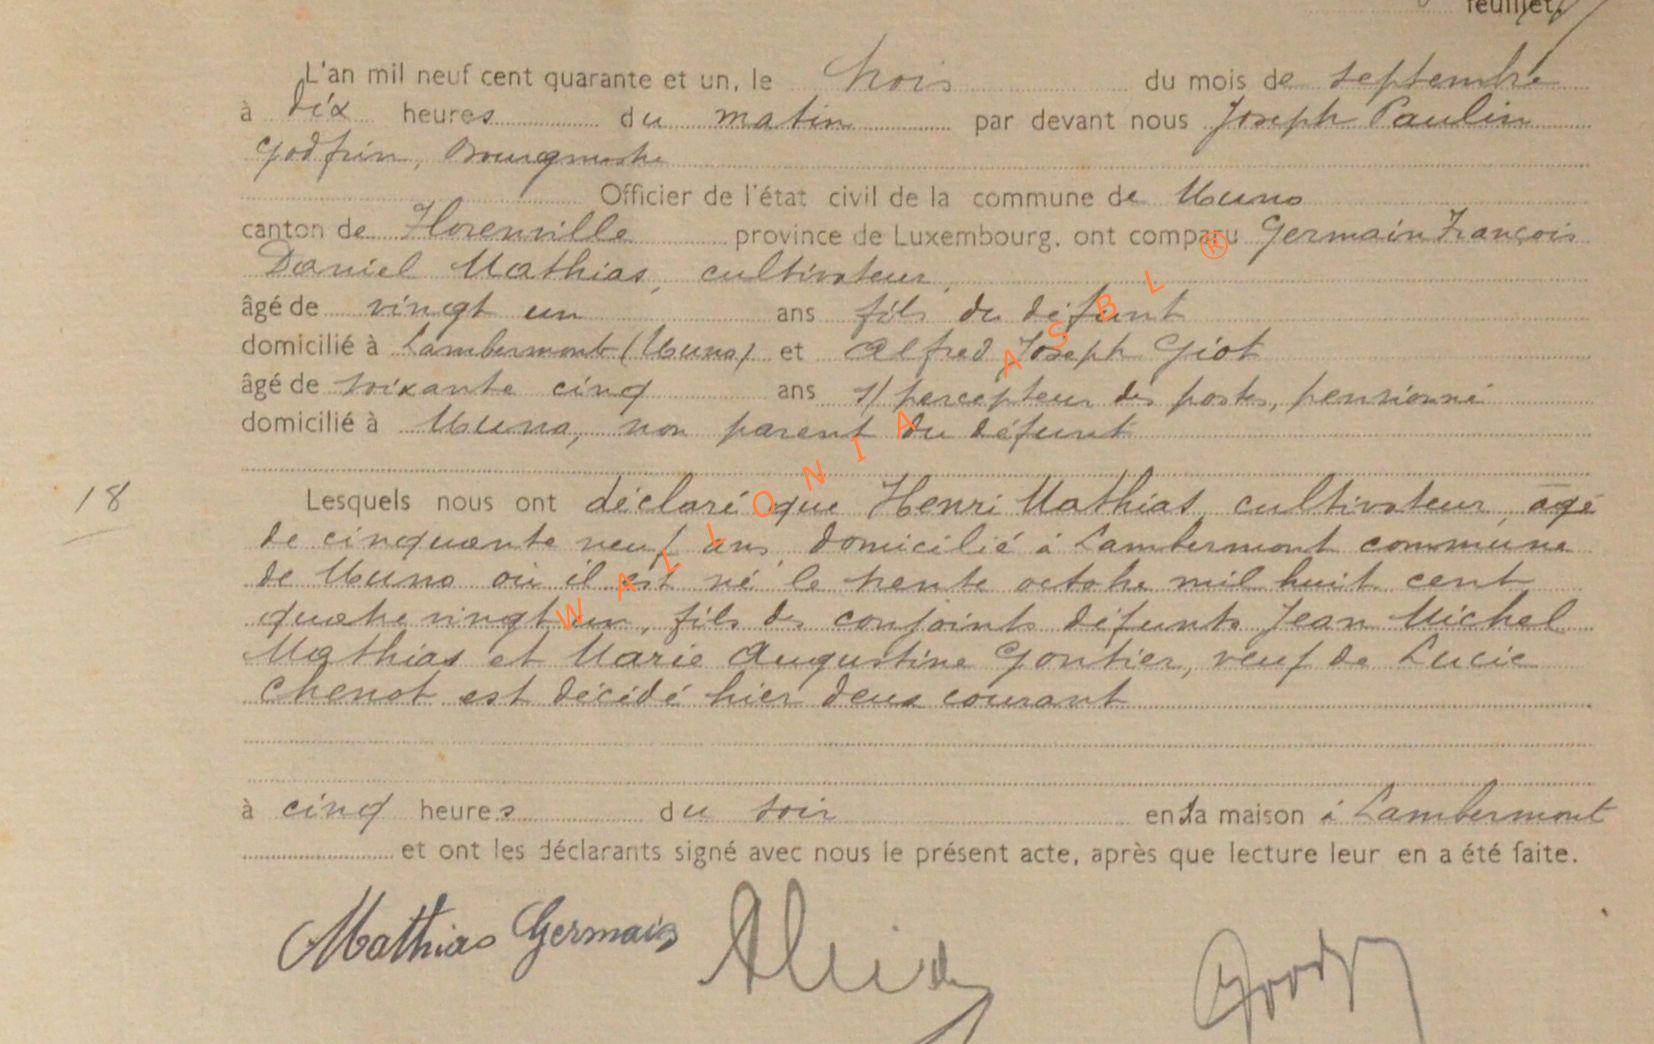 feuillet.
L'an mil neuf cent quarante et un, le trois du mois de septembre
à dix heures du matin par devant nous Joseph Paulin
Godfrin, Bourgmestre
Officier de l'état civil de la commune de Muno
canton de Florenville province de Luxembourg, ont comparu Germain François
Daniel Mathias, cultivateur,
âgé de vingt un ans fils du défunt
domicilié à Lambermont (Muno) et Alfred Joseph Giot
âgé de soixante cinq ans s/percepteur des postes, pensionné
domicilié à Muno, non parent du défunt
18 Lesquels nous ont déclaré que Henri Mathias, cultivateur, âgé
de cinquante neuf ans domicilié à Lambermont commune
de Muno où il est né le trente octobre mil huit cent
quatre vingt un, fils des conjoints défunts Jean Michel
Mathias et Marie Augustine Gontier, veuf de Lucie
Chenot est décédé hier deux courant
à cinq heures du soir en sa maison à Lambermont
et ont les déclarants signé avec nous le présent acte, après que lecture leur en a été faite.
Mathias Germain
WALLONIA ASBL ®